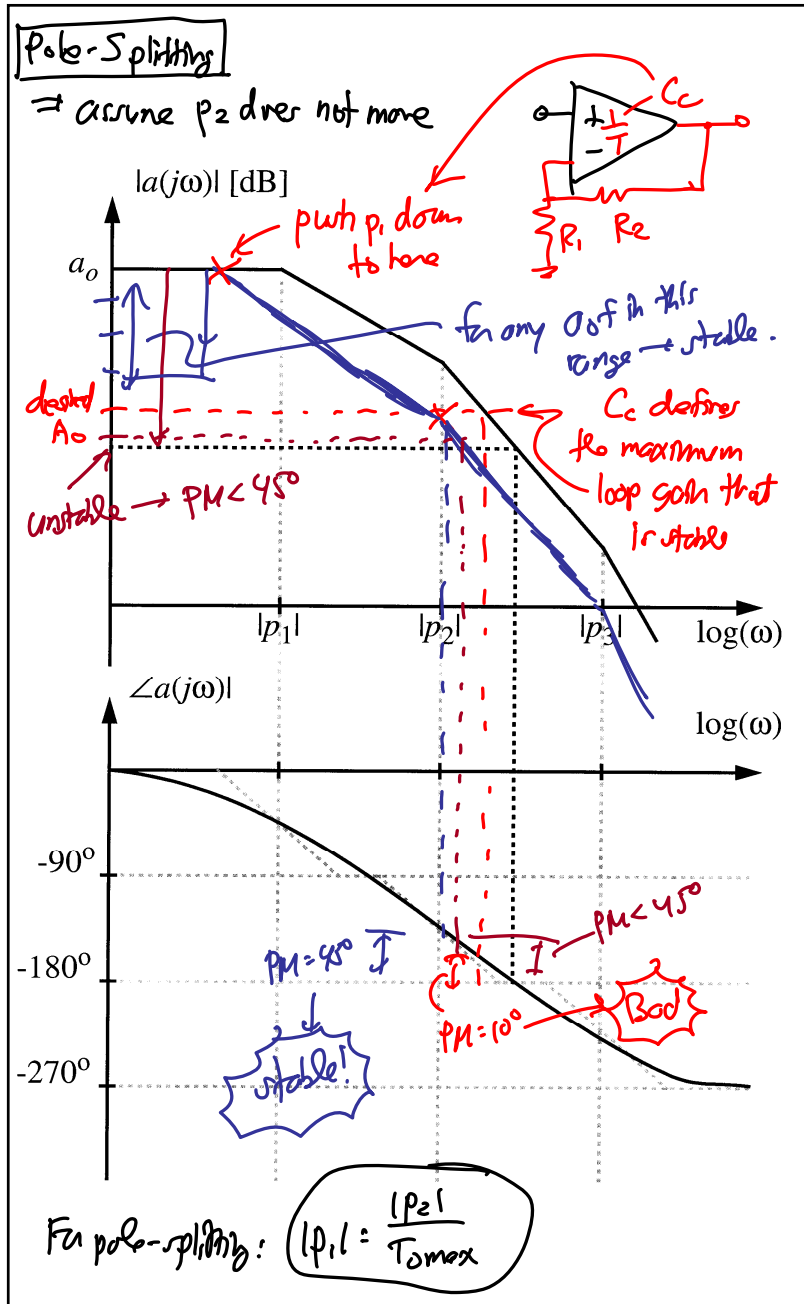 Pole-Splitting
⇒ assume p2 does not move
Cc
+
-
R1 R2
|a(jω)| [dB]
push p1 down
to here
ao
for any aof in this
range → stable.
desired
Ao
Cc defines
the maximum
loop gain that
is stable
unstable → PM < 45°
|p1| |p2| |p3| log(ω)
∠a(jω)|
log(ω)
-90o
PM < 45°
PM = 45°
-180o
Bad
PM = 10°
stable!
-270o
For pole-splitting: |p1| = |p2| / Tomax